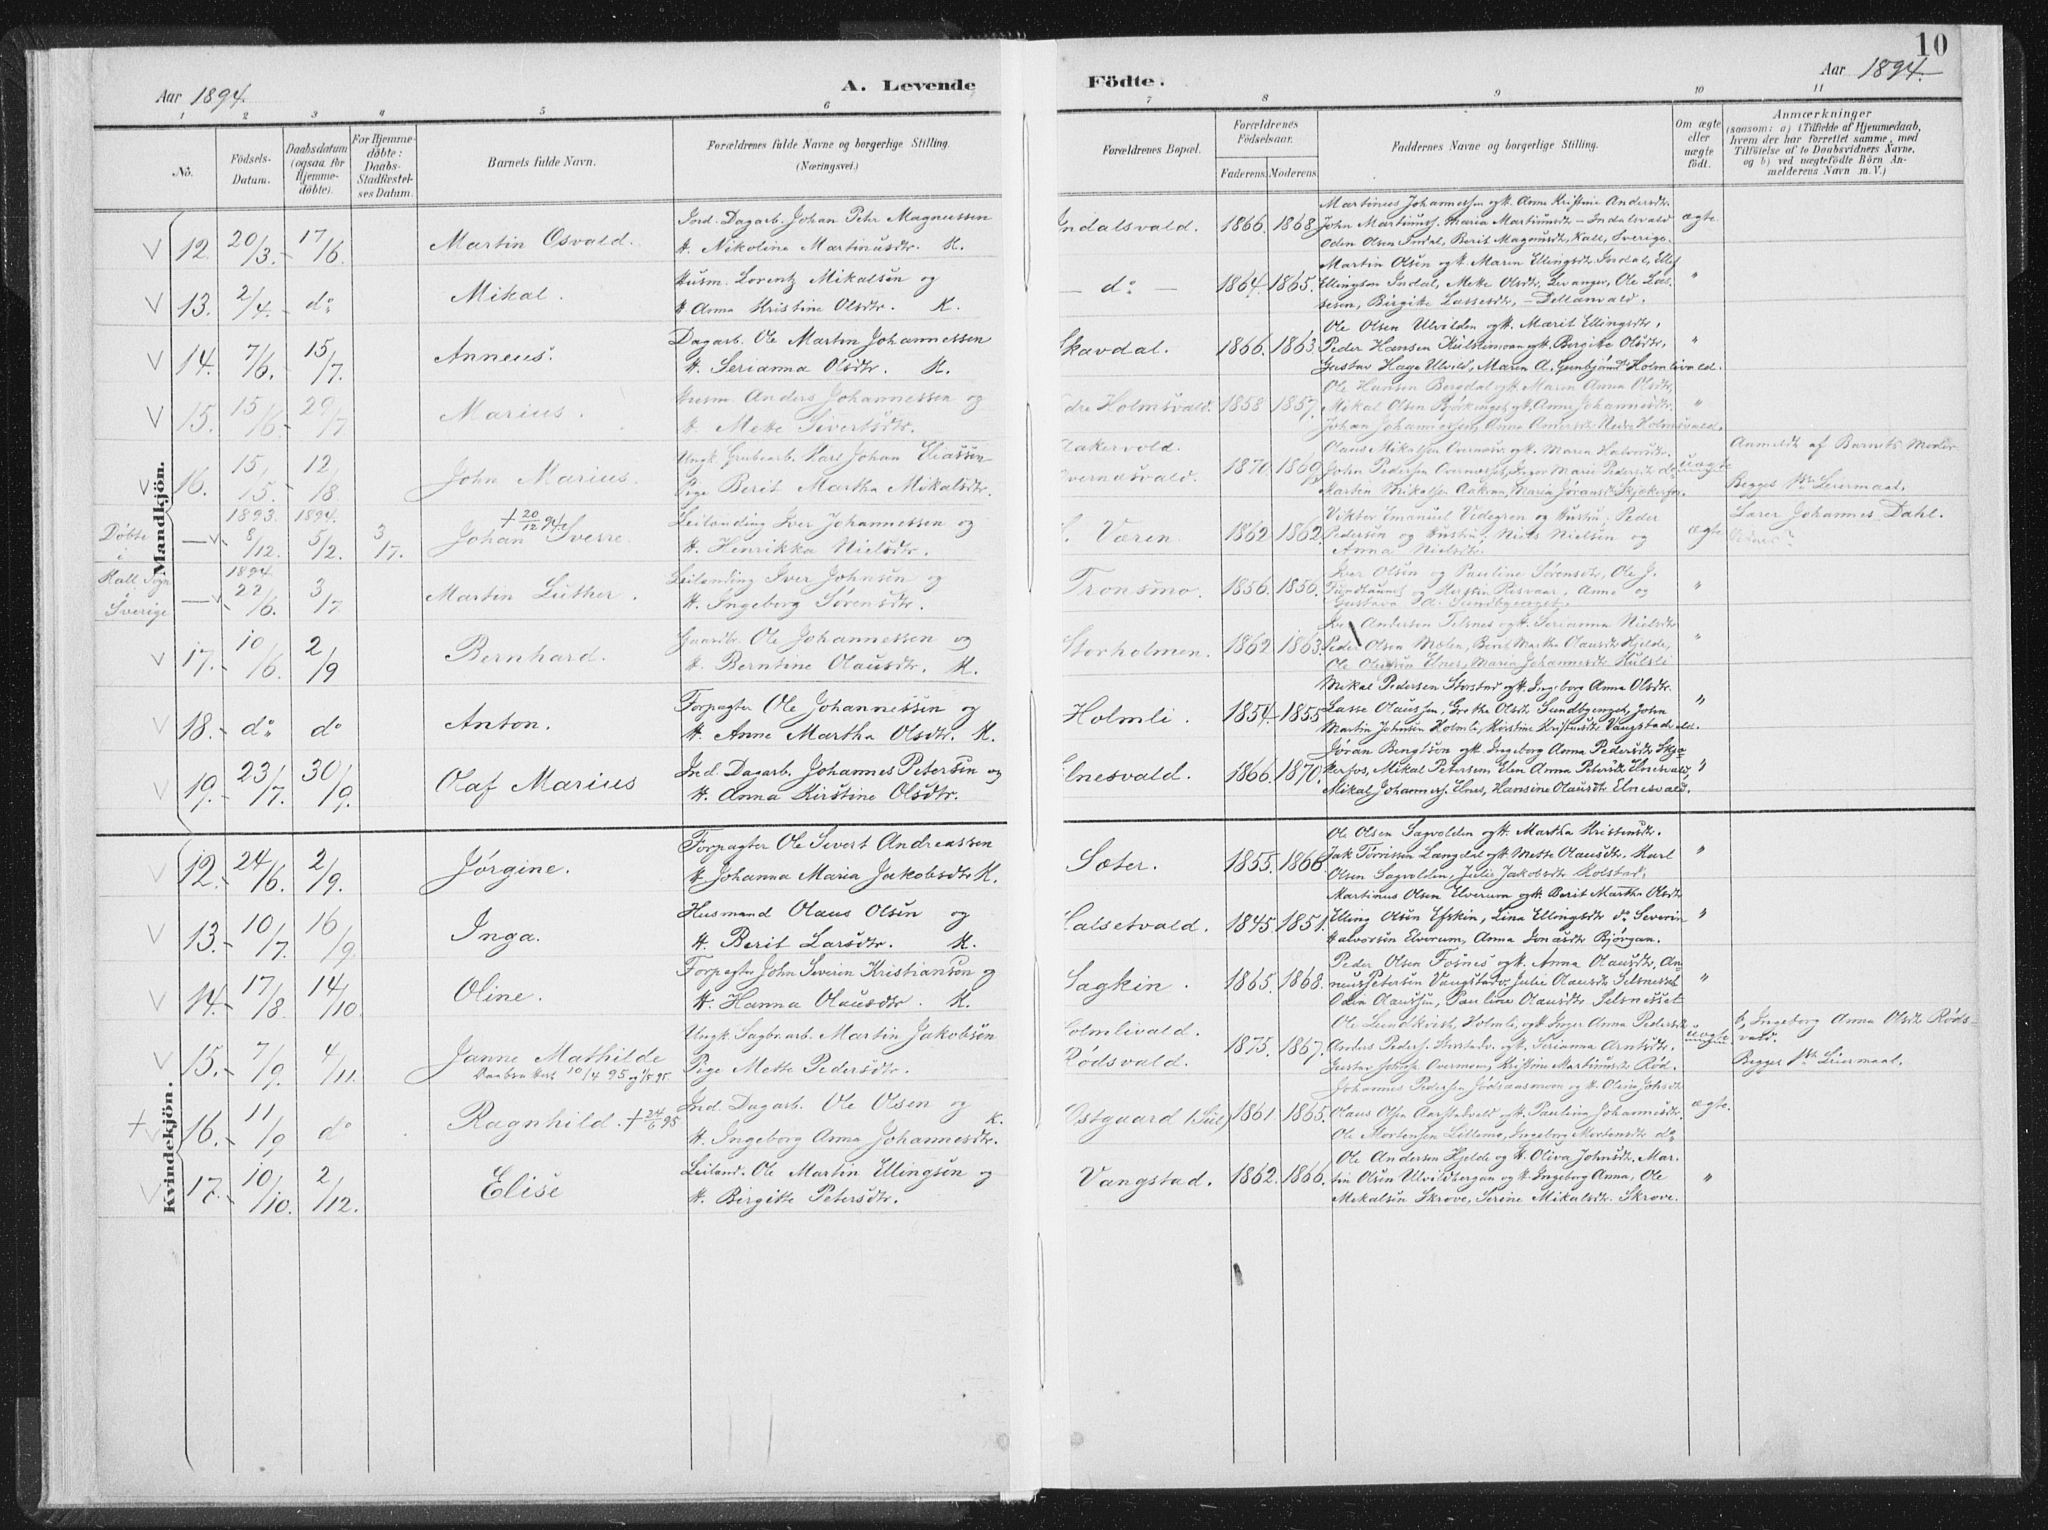 10
Aar 1894.
A. Levende
Födte.
Aar 1894.
1 2 3 4 5 6 7 8 9 10 11
No.
Födsels-Datum.
Daabsdatum (ogsaa for Hjemmedöbte).
For Hjemmedöbte: Daabs-Stadfæstelses Datum.
Barnets fulde Navn.
Forældrenes fulde Navne og borgerlige Stilling. (Næringsvei.)
Forældrenes Bopæl.
Forældrenes Födselsaar.
Faderens. Moderens.
Faddernes Navne og borgerlige Stilling.
Om ægte eller uægte födt.
Anmærkninger
(saasom: a) i Tilfælde af Hjemmedaab, hvem der har forrettet samme, med Tilföielse af to Daabsvidners Navne, og b) ved uægtefödte Börn Anmelderens Navn m. V.)
Mandkjön.
12. 20/3. 17/6. Martin Osvald.
Ind. Dagarb. Johan Petr Magnussen
H. Nikoline Martinusdtr. K.
Indalsvald. 1866. 1868.
Martinus Johannessen og H. Anne Kristine Andersdtr.
John Martinuss. Maria Martinusdtr - Indalsvald
Oden Olsen Indal, Berit Magnusdtr, Kall, Sverige.
ægte.
13. 2/4. do Mikal.
Husm. Lorentz Mikalsen og
H. Anna Kristine Olsdtr. K.
- do - 1864. 1865.
Martin Olsen og H. Maren Ellingsdtr Indal, Ellef
Ellingsen Indal, Mette Olsdtr, Levanger, Ole Lassesen, Birgitte Lassesdtr,
"
14. 7/6. 15/7. Anneus.
Dagarb. Ole Martin Johannessen
H. Serianna Olsdtr. K.
Skavdal. 1866. 1863.
Ole Olsen Ulvilden og H. Marit Ellingsdtr,
Peder Hansen Kulslimoen og H. Bergitte Olsdtr,
Gustav Hage Ulvild, Maren A. Gunbjörnsdtr Holmlivald.
"
15. 15/6. 29/7 Marius.
Husm. Anders Johannessen og
H. Mette Sivertsdtr.
Holmsvald. 1858 1857.
Ole Hansen Bergdal og H. Maren Anna Olsdtr,
Mikal Olsen Björkenget og H. Anne Johannesdtr.
Johan Johannessen, Anne Andersdtr Nedre Holmsvald.
"
16. 15/5. 12/8. John Marius.
Ungk. Grubearb. Karl Johan Eliassen
Pige Berit Martha Mikalsdtr.
1870. 1869.
Olaus Mikalsen Overmoen og H. Maren Halvorsdtr.
uægte
Anmeldt af Barnets Moder
Begges 1ste Leiermaal.
Döbte i Kall Sogn i Sverige
1893 8/12. 1894. 5/2. 3/7. Johan Sverre. + 20/12 94.
Leilænding Iver Johannessen og
H. Henrikka Nielsdtr.
Væren. 1862 1862.
Viktor Emanuel Videgren og Hustru, Peder
Pedersen og Hustru, Niels Nielsen og
Anna Nielsdtr.
ægte
Lærer Johannes Dahl.
1894 22/6. 3/7. Martin Luther.
Leilænding Iver Johnsen og
H. Ingeborg Sörensdtr.
Tronsmo. 1856. 1856.
Iver Olsen og Pauline Sörensdtr, Ole J.
"
17. 10/6. 2/9 Bernhard.
Gaardbr. Ole Johannessen og
H. Berntine Olausdtr. K.
Storholmen. 1862 1863.
Andersen Telsnes og H. Serianna Nielsdtr
Peder Olsen Mælen, Berit Martha Olausdtr Hjelde,
Ole Olsen Elnes, Maria Johannesdtr Kulsli
"
18. do do Anton.
Forpagter Ole Johannessen og
H. Anne Martha Olsdtr. K.
Holmli. 1854 1855
Mikal Pedersen Storstad og H. Ingeborg Anna Olsdtr.
Lasse Olaussen, Grethe Olsdtr Sundbyenget, John
Martin Johnsen Holmli, Kirstine Kristiansdtr Vangstadvald.
"
19. 23/7. 30/9. Olaf Marius
Ind. Dagarb. Johannes Petersen og
H. Anna Kirstine Olsdtr.
Elnesvald. 1866. 1870.
Jöran Bengtsen og H. Ingeborg Anna Pedersdtr Skjækerfos, Mikal Petersen, Elen Anna Petersdtr Elnesvald,
Mikal Johanness. Elnes, Hansine Olausdtr Elnesvald.
"
Kvindekjön.
12. 24/6. 2/9. Jørgine.
Forpagter Ole Sivert Andreassen
H. Johanna Maria Jakobsdtr K.
Sæter. 1855. 1866.
Ole Olsen Sagvolden og H. Martha Kristensdtr.
Jak Törrissen Langdal og H. Mette Olausdtr, Karl
Olsen Sagvolden, Julie Jakobsdtr Kolstad.
"
13. 10/7. 16/9. Inga.
Husmand Olaus Olsen og
H. Berit Larsdtr. K.
Halsetvald. 1845. 1851.
Martinus Olsen Elverum og H. Berit Martha Olsdtr
Elling Olsen Efskin, Lina Ellingsdtr do Severin
Halvorsen Elverum, Anna Jonasdtr Björgan.
"
14. 17/8. 14/10. Oline.
Forpagter John Severin Kristiansen og
H. Hanna Olausdtr. K.
Sagkin. 1865. 1868.
Peder Olsen Fosnes og H. Anna Olausdtr, Anneus Petersen Vangstad, Julie Olausdtr Telsnesset
Oden Olaussen, Pauline Olausdtr Telsnesset
"
15. 7/9. 4/11. Janne Mathilde
Daabsattest 10/4 95 og 1/5 95.
Ungk. Sagbr.arb. Martin Jakobsen
Pige Mette Pedersdtr.
Holmlivald.
Rødsvald. 1875. 1867.
Ole Lundkvist, Holmli, og H. Inger Anna Pedersdtr
Anders Peders. Storstadv. og H. Serianna Arntsdtr.
Gustav Johns. Overmoen, Kristine Martinusdtr Röd.
uægte
Ingeborg Anna Olsdtr Rødsvald.
Begges 1ste Leiermaal.
+ 16. 11/9. do Ragnhild. + 24/6 95
Ind. Dagarb. Ole Olsen og
H. Ingeborg Anna Johannesdtr. K.
Östgaard 1861 1865.
Johannes Pedersen Jödaasmoen og H. Olina Johsdtr
Olaus Olsen Aarstadvald og H. Paulina Johannesdtr.
Ole Mortensen Lillemo, Ingeborg Mortensdtr do
ægte.
17. 10/10. 2/12. Elise
Leilænd. Ole Martin Ellingsen og
H. Birgitte Petersdtr.
Vangstad. 1862. 1866.
Ole Andersen Hjelde og H. Oliva Johnsdtr. Martin Olsen Ulvildbergan og H. Ingeborg Anna, Ole
Mikalsen Skrove, Serine Mikalsdtr. Skrove.
"